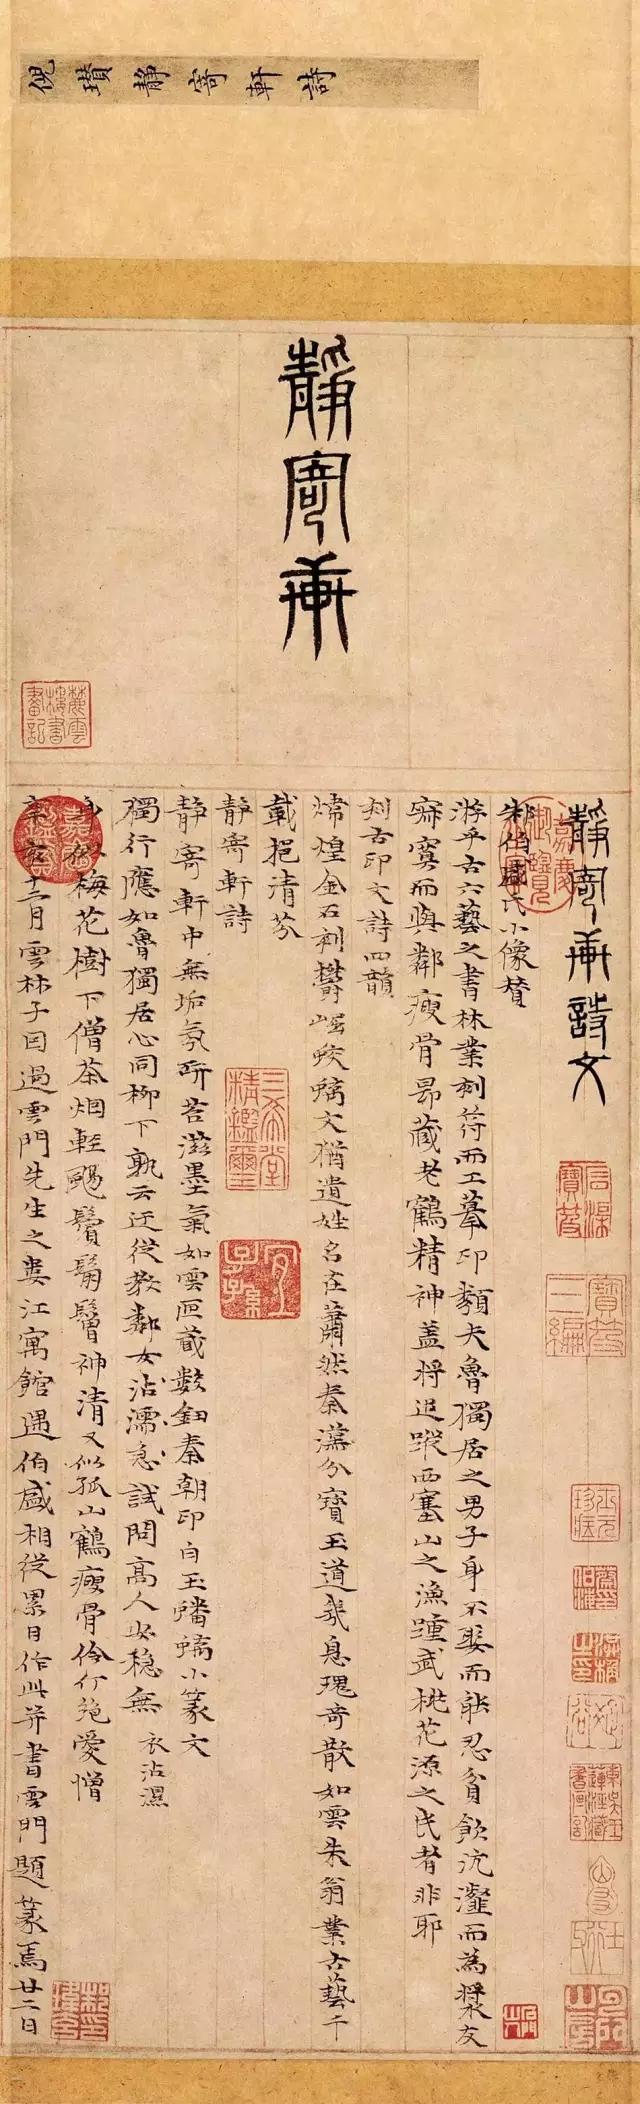 倪瓚靜寄軒詩
靜寄軒
靜寄軒詩文
朱伯盛氏小像贊
游乎古六藝之書林業刻符而工摹印類夫魯獨居之男子身不娶而能忍貧飲沆瀣而為漿友
寂寞而與鄰瘦骨昂藏老鶴精神蓋將追蹤西塞山之漁踵武桃花源之民者非耶
刻古印文詩四韻
煒煌金石刻鬱崛蛟螭文猶遺姓名在蕭然秦漢分寶玉道幾息瑰奇散如雲朱翁業古藝千
載挹清芬
靜寄軒詩
靜寄軒中無垢氛研苔滋墨氣如雲匣藏數鈕秦朝印白玉蟠螭小篆文
獨行應如魯獨居心同柳下孰云迂從教鄰女沾濡急試問高人安穩無 衣沾濕
身似梅花樹下僧茶烟輕颺鬢鬅鬙神清又似孤山鶴瘦骨伶仃絶愛憎
辛亥十二月雲林子因過雲門先生之婁江寓館遇伯盛相從累日作此并書雲門題篆焉廿二日
嘉慶御覽之寶
嘉慶鑑賞
三希堂精鑑璽
宜子孫
石渠寶笈
寶笈三編
麓雲樓書畫記